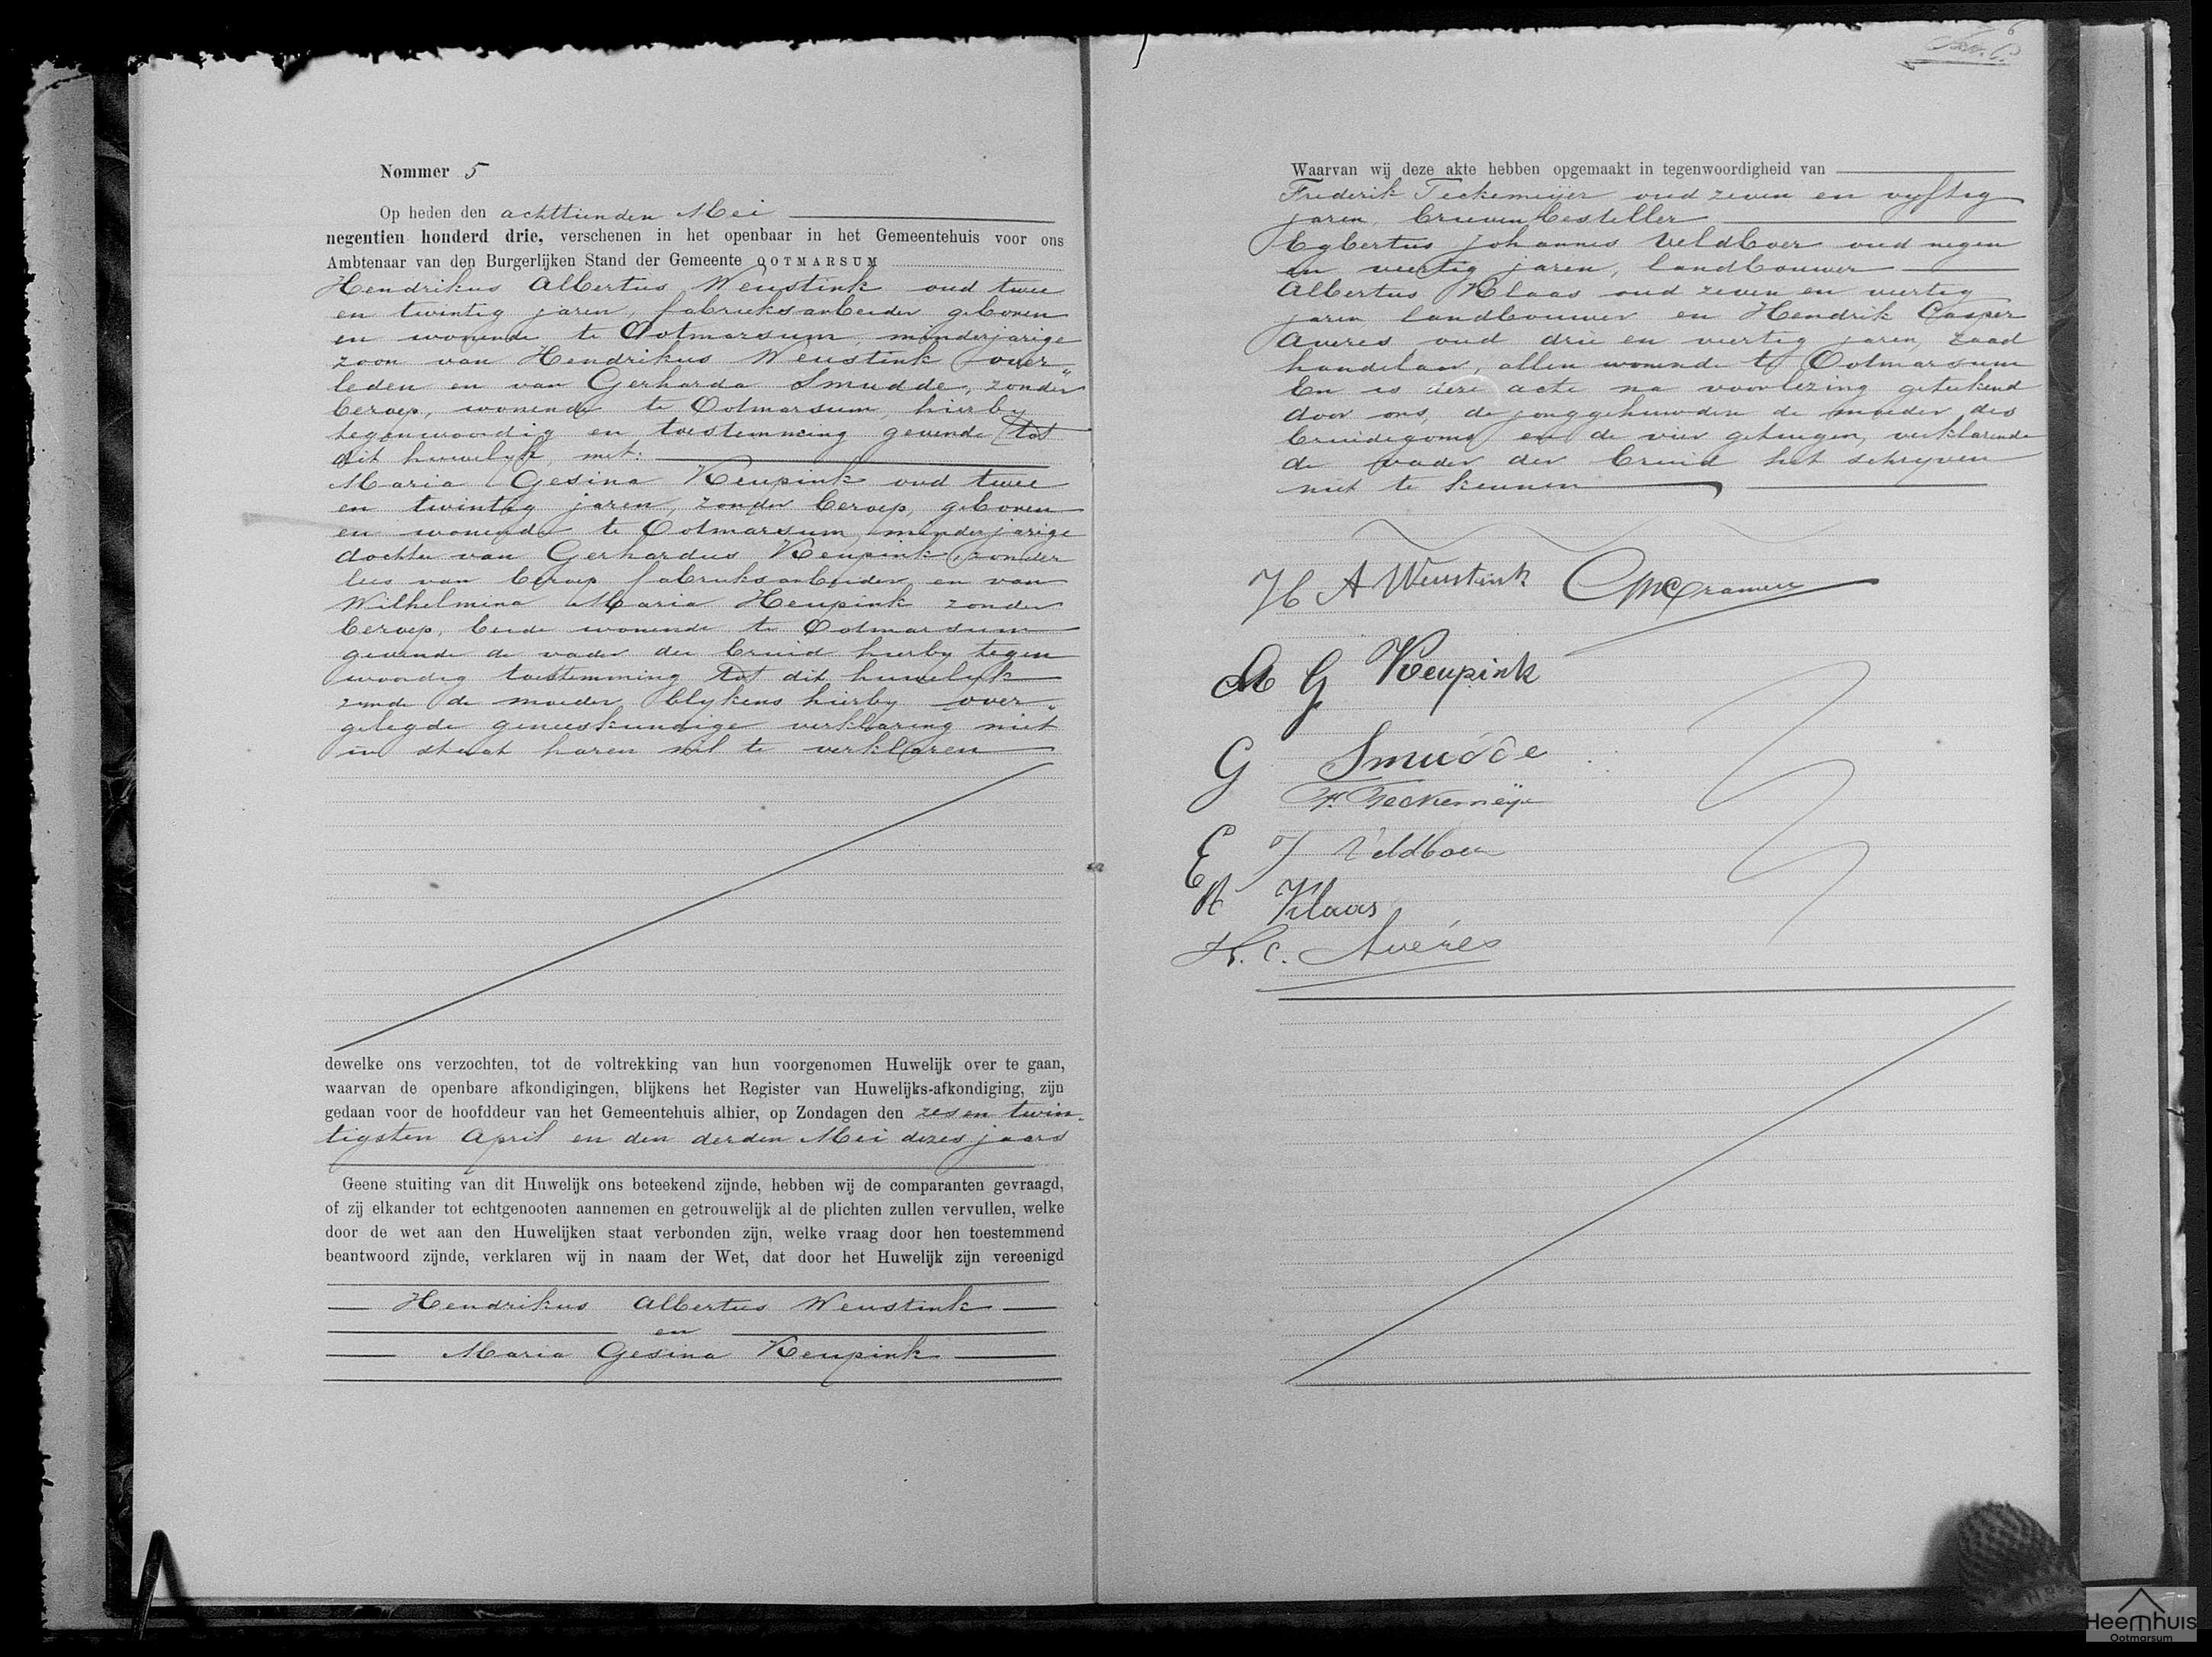 Nommer 5
Op heden den achttienden Mei
negentien honderd drie, verschenen in het openbaar in het Gemeentehuis voor ons
Ambtenaar van den Burgerlijken Stand der Gemeente OOTMARSUM
Hendrikus Albertus Weustink oud twee
en twintig jaren, fabrieksarbeider geboren
en wonende te Ootmarsum, minderjarige
zoon van Hendrikus Weustink over„
leden en van Gerharda Smudde, zonder
beroep, wonende te Ootmarsum, hierby
tegenwoordig en toestemming gevende tot
dit huwelyk, met:
Maria Gesina Keupink oud twee
en twintig jaren, zonder beroep, geboren
en wonende te Ootmarsum, minderjarige
dochter van Gerhardus Keupink, zonder
van beroep fabrieksarbeider, en van
Wilhelmina Maria Heupink zonder
beroep, beide wonende te Ootmarsum
gevende de vader der bruid hierby tegen
woordig toestemming tot dit huwelyk
zynde de moeder blykens hierby over„
gelegde geneeskundige verklaring niet
in staat haren wil te verklaren
dewelke ons verzochten, tot de voltrekking van hun voorgenomen Huwelijk over te gaan,
waarvan de openbare afkondigingen, blijkens het Register van Huwelijks-afkondiging, zijn
gedaan voor de hoofddeur van het Gemeentehuis alhier, op Zondagen den zes en twin„
tigsten April en den derden Mei dezes jaars
Geene stuiting van dit Huwelijk ons beteekend zijnde, hebben wij de comparanten gevraagd,
of zij elkander tot echtgenooten aannemen en getrouwelijk al de plichten zullen vervullen, welke
door de wet aan den Huwelijken staat verbonden zijn, welke vraag door hen toestemmend
beantwoord zijnde, verklaren wij in naam der Wet, dat door het Huwelijk zijn vereenigd
Hendrikus Albertus Weustink
en
Maria Gesina Keupink
6
Waarvan wij deze akte hebben opgemaakt in tegenwoordigheid van
Frederik Teckemeijer oud zeven en vyftig
jaren, brievenbesteller
Egbertus Johannes Veldboer oud negen
en veertig jaren, landbouwer
Albertus Klaas oud zeven en veertig
jaren landbouwer en Hendrik Casper
Averes oud drie en veertig jaren, zaad
handelaar, allen wonende te Ootmarsum
En is deze acte na voorlezing geteekend
door ons, de jonggehuwden de moeder des
bruidegoms en de vier getuigen, verklarende
de vader der bruid het schryven
niet te kennen
H A Weustink Cramer
M G Keupink
G Smudde
F. Teckemeijer
E J Veldboer
A Klaas
H. C. Avéres
Heemhuis
Ootmarsum